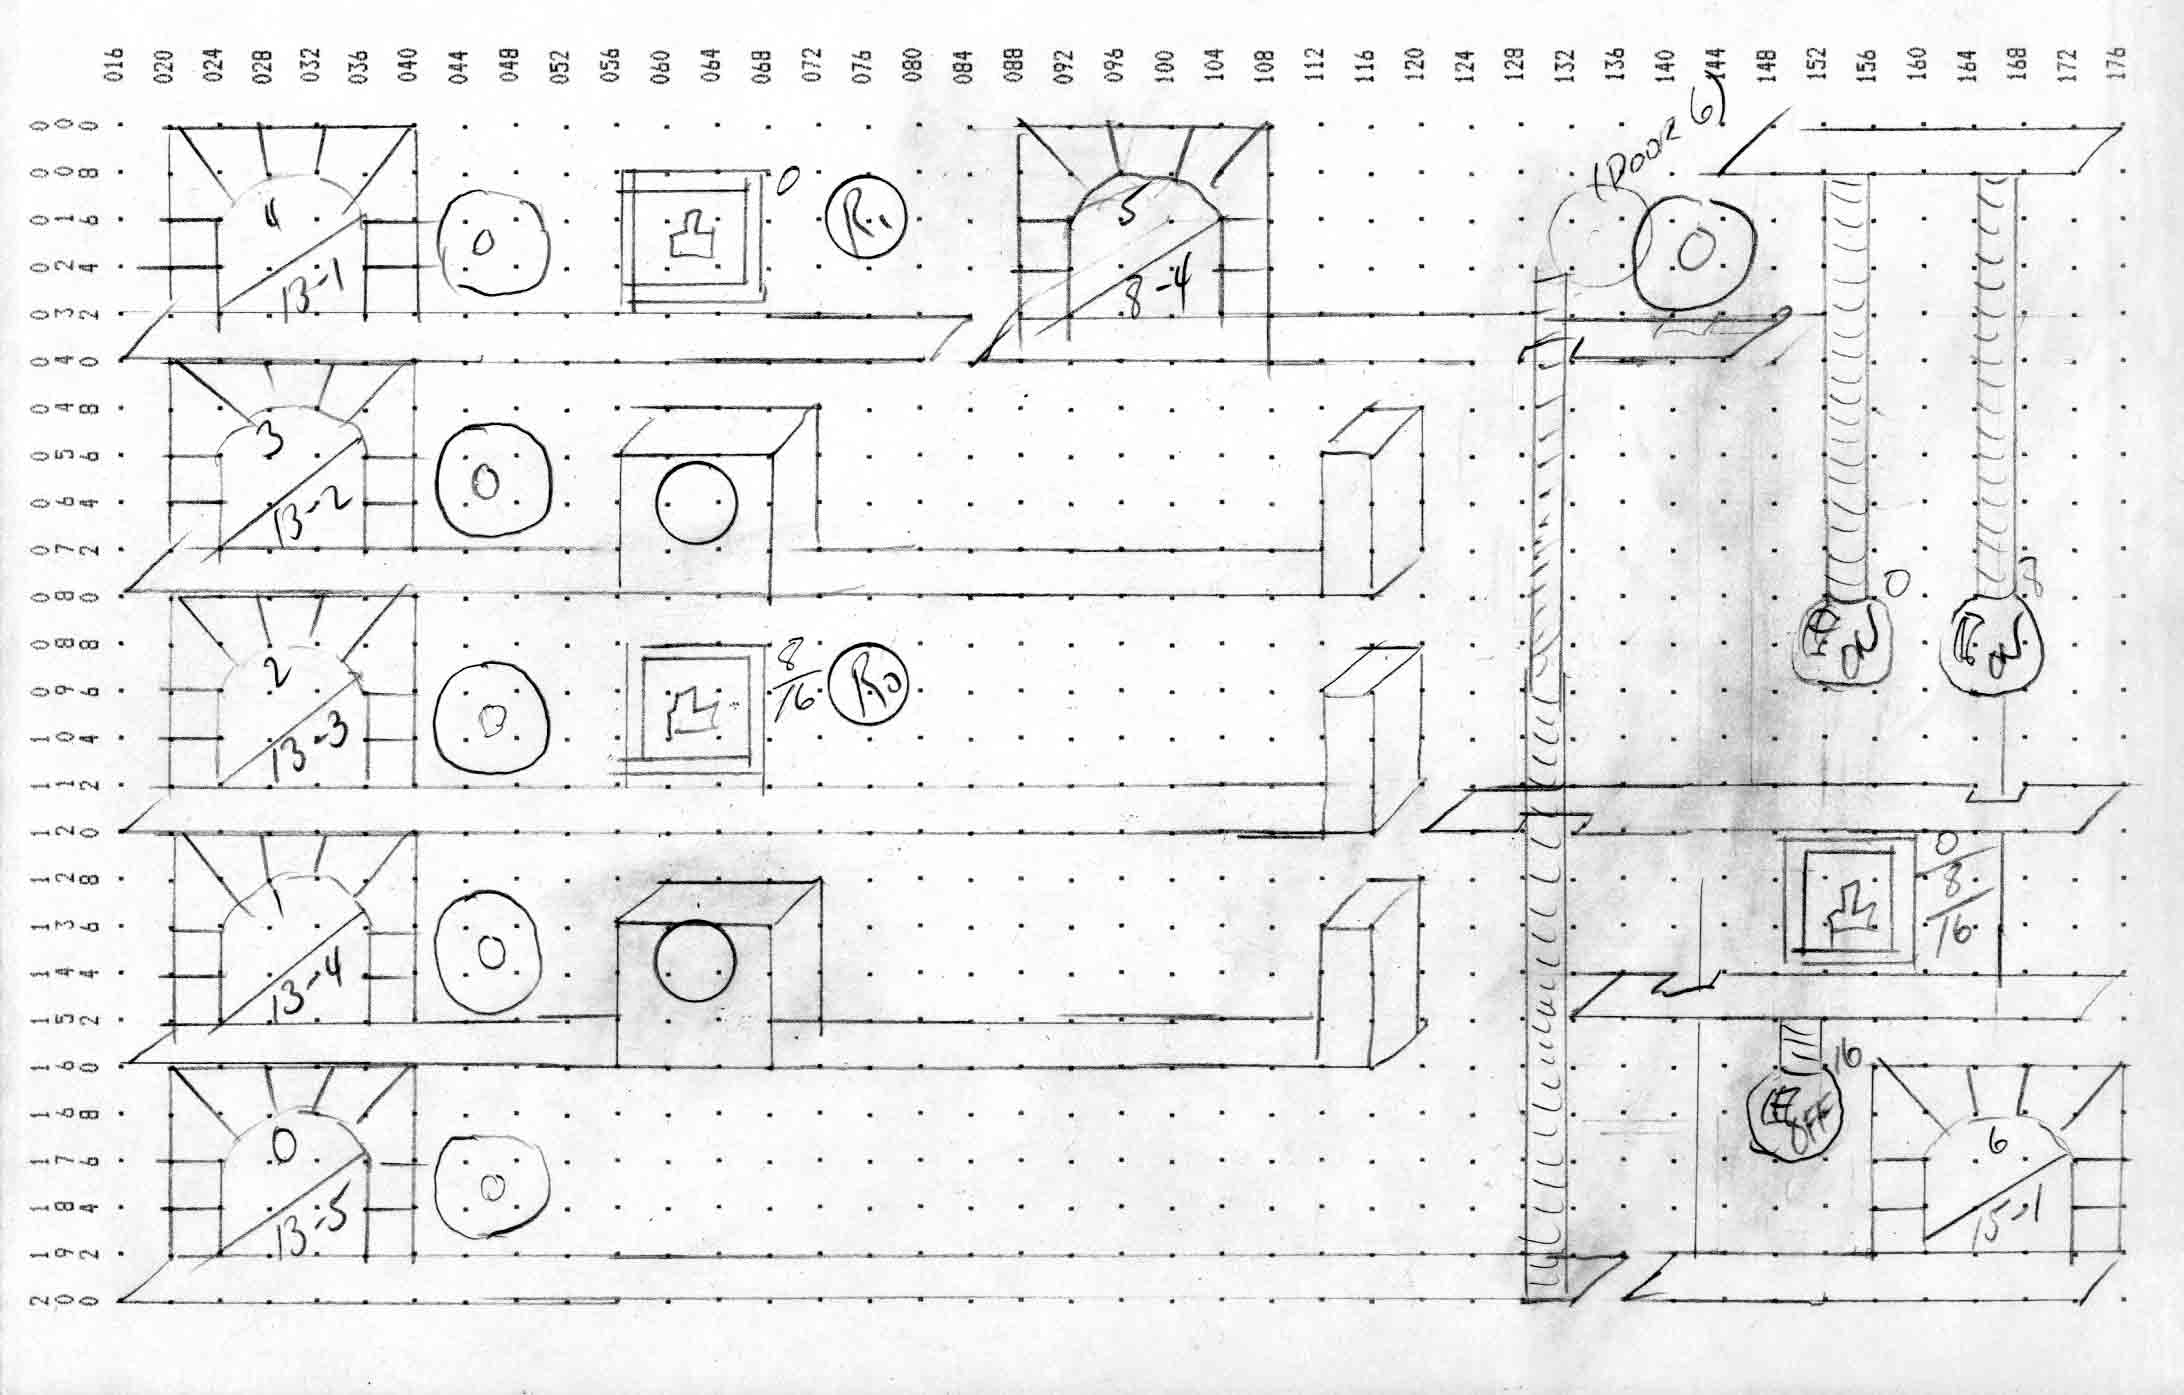 016 020 024 028 032 036 040 044 048 052 056 060 064 068 072 076 080 084 088 092 096 100 104 108 112 116 120 124 128 132 136 140 144 148 152 156 160 164 168 172 176
000
008
016
024
032
040
048
056
064
072
080
088
096
104
112
120
128
136
144
152
160
168
176
184
192
200
(DOOR 6)
4
13-1
0
0
R1
5
8-4
0
3
13-2
0
2
13-3
0
8/16
R0
0
ON
8
ON
13-4
0
0/8/16
0
13-5
0
16
OFF
6
15-1